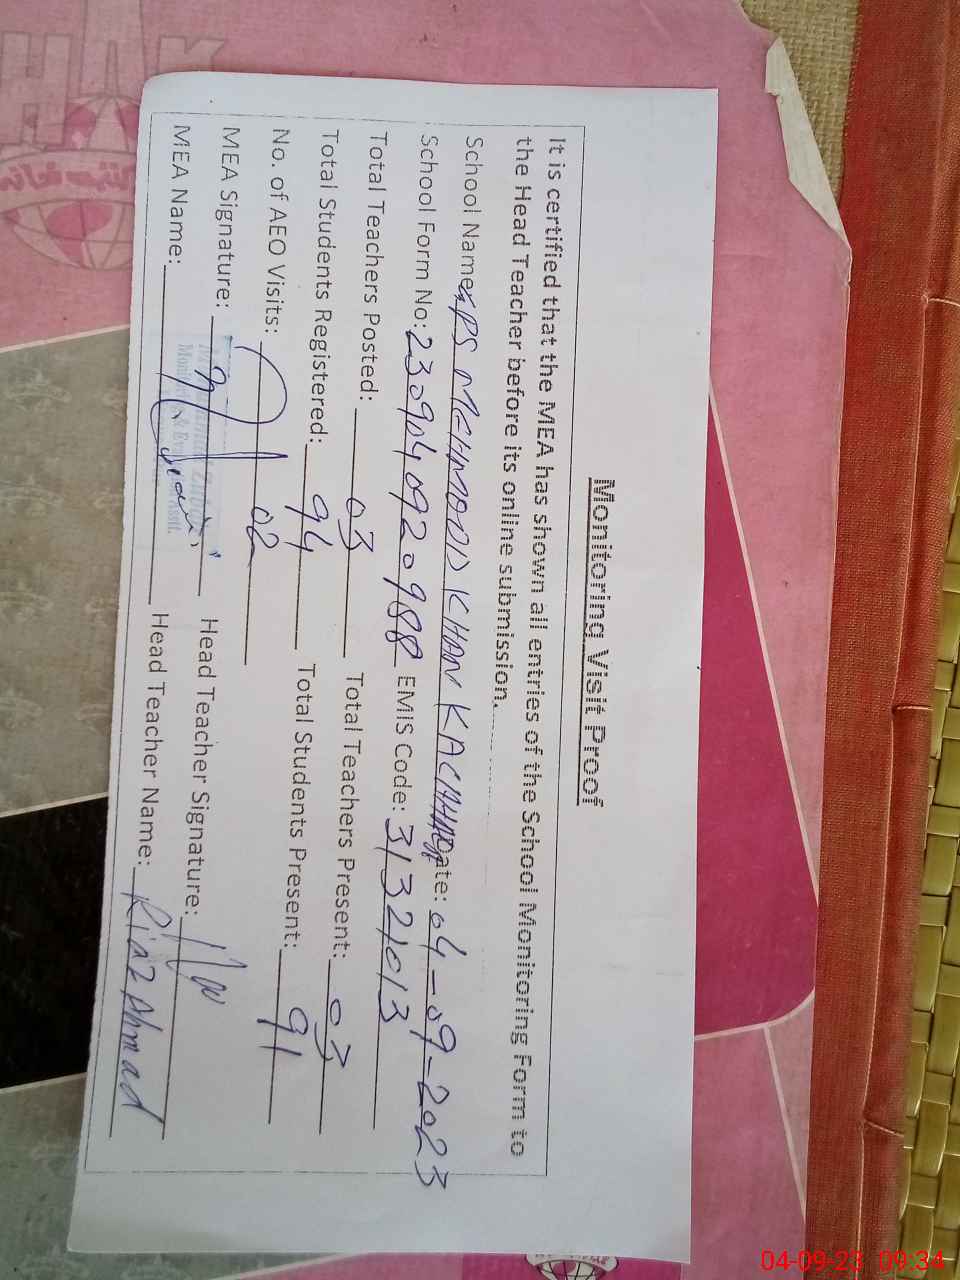 Monitoring Visit Proof
It is certified that the MEA has shown all entries of the School Monitoring Form to
the Head Teacher before its online submission.
School Name: GPS MEHMOOD KHAN KACHHI Date: 04-09-2023
School Form No: 2309040920988 EMIS Code: 31321013
Total Teachers Posted: 03 Total Teachers Present: 03
Total Students Registered: 94 Total Students Present: 91
No. of AEO Visits: 02
MEA Signature: Head Teacher Signature:
MEA Name: Head Teacher Name: Riaz Ahmad
04-09-23 09:34